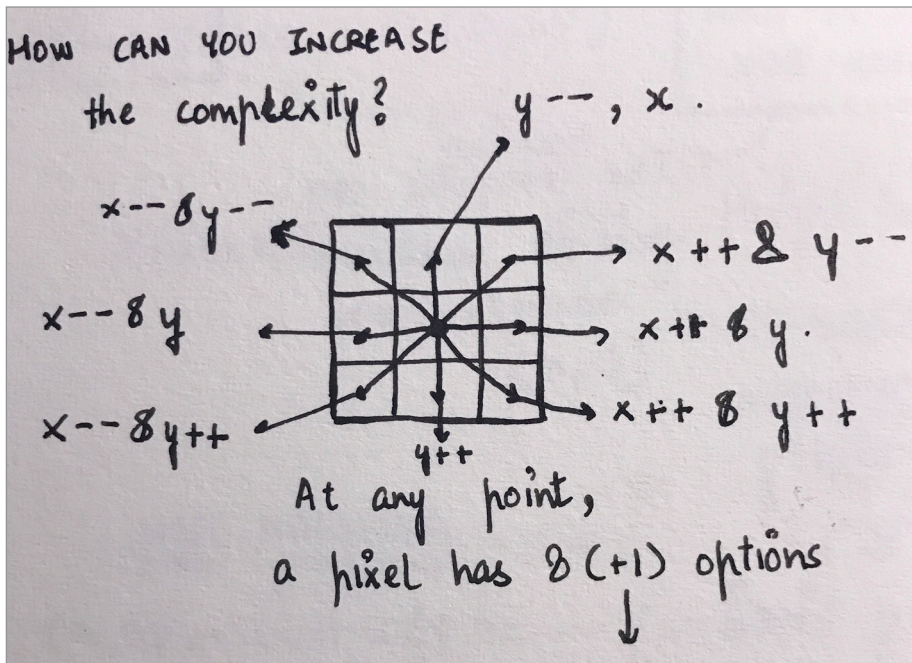 HOW CAN YOU INCREASE
the complexity?
y--, x.
x-- & y--
x++ & y--
x-- & y
x++ & y.
x-- & y++
x++ & y++
y++
At any point,
a pixel has 8 (+1) options